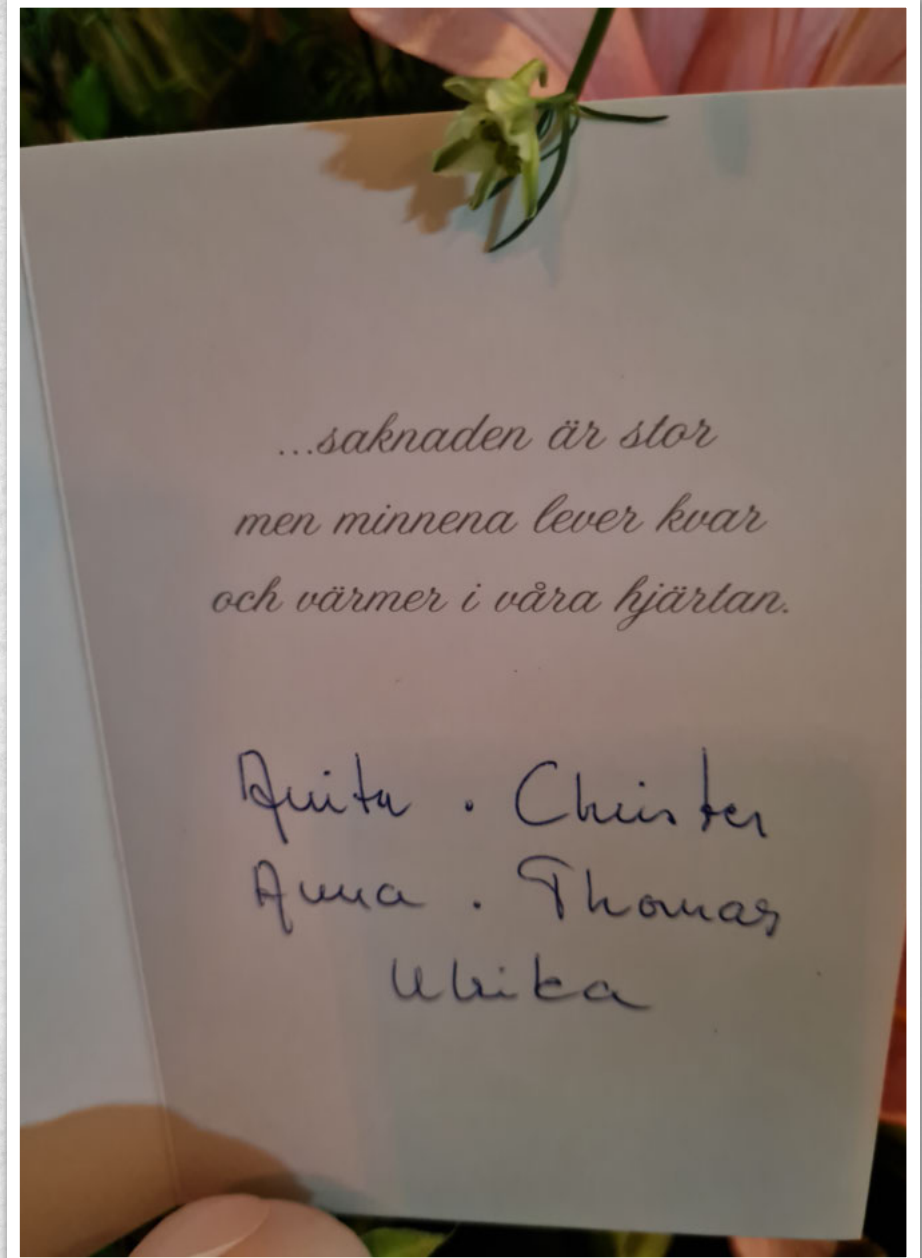 ...saknaden är stor
men minnena lever kvar
och värmer i våra hjärtan.
Anita · Christer
Anna · Thomas
Ulrika